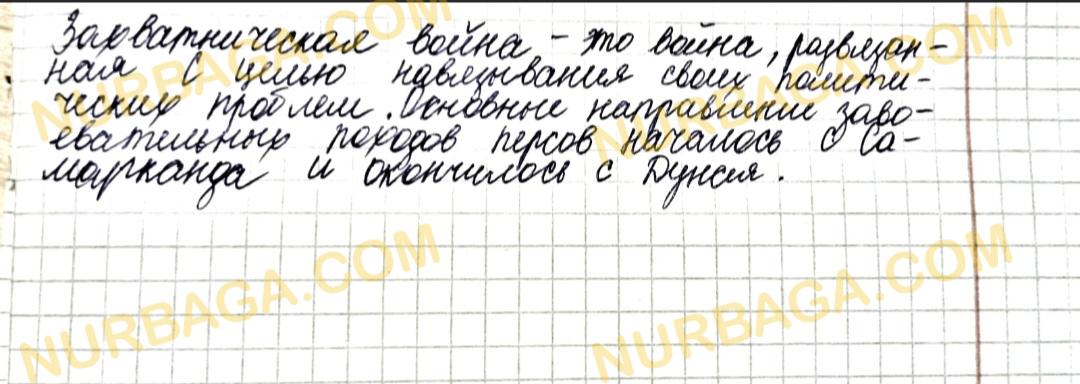 Захватническая война - это война, развязан-
ная с целью навязывания своих полити-
ческих проблем. Основные направление заво-
евательных походов персов началось с Са-
марканда и окончилось с Дуная.
NURBAGA.COM
NURBAGA.COM
NURBAGA.COM
NURBAGA.COM